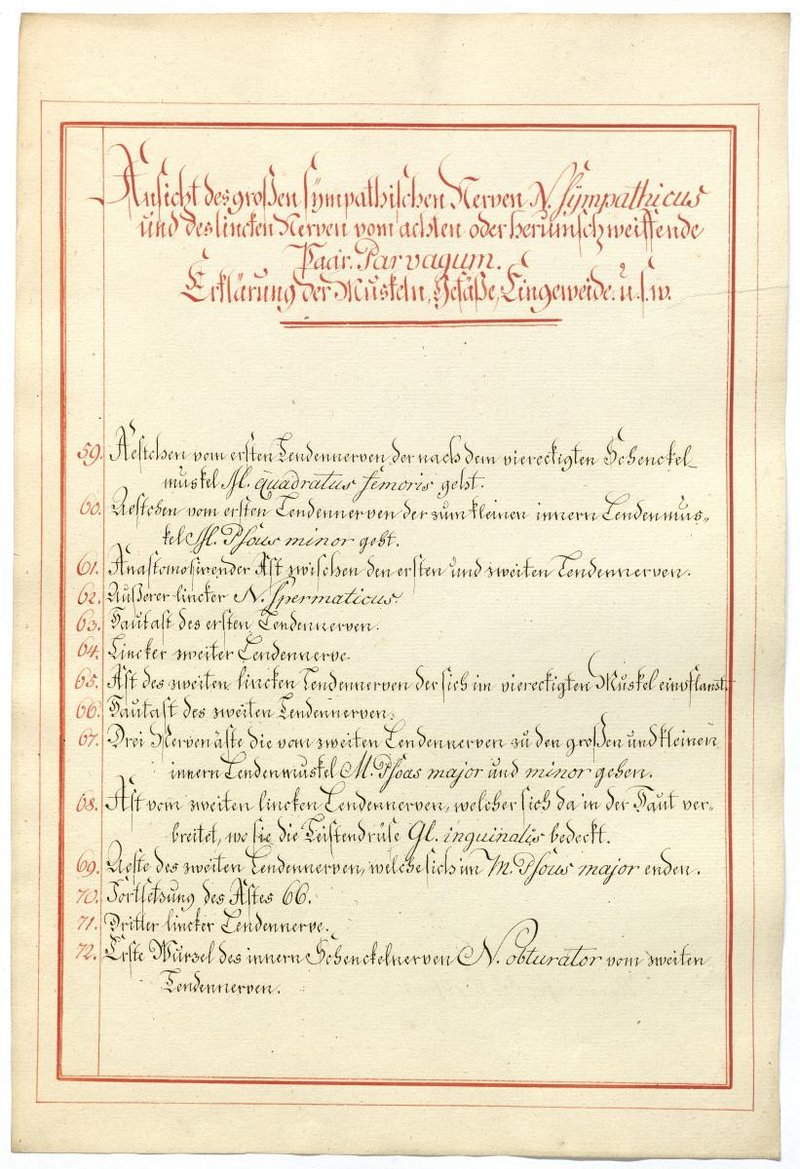 Ansicht des großen sympathischen Nerven N. Sÿmpathicus
und des lincken Nerven vom achten oder herumschweiffende
Paar. Par vagum.
Erklärung der Muskeln, Gefäße, Eingeweide. u. s. w.
59. Aestchen vom ersten Lendennerven der nach dem viereckigten Schenckel-
muskel M. quadratus femoris geht.
60. Aestchen vom ersten Lendennerven der zum kleinen innern Lendenmus-
kel M. Psous minor geht.
61. Anastomosirender Ast zwischen den ersten und zweiten Lendennerven.
62. Äußerer lincker N. spermaticus.
63. Hautast des ersten Lendennerven.
64. Lincker zweiter Lendennerve.
65. Ast des zweiten lincken Lendennerven der sich im viereckigten Muskel einpflanzt.
66. Hautast des zweiten Lendennerven.
67. Drei Nervenäste die vom zweiten Lendennerven zu den großen und kleinen
innern Lendenmuskel M. Psoas major und minor gehen.
68. Ast vom zweiten lincken Lendennerven, welcher sich da in der Haut ver-
breitet, wo sie die Leistendrüse Gl. inguinalis bedeckt.
69. Aeste des zweiten Lendennerven, welche sich im M. Psous major enden.
70. Fortsetzung des Astes 66.
71. Dritter lincker Lendennerve.
72. Erste Wurzel des innern Schenckelnerven N. obturator vom zweiten
Lendennerven.